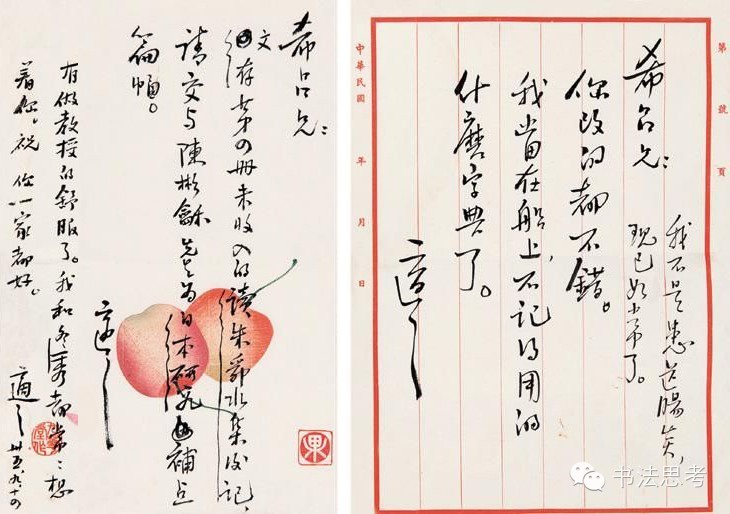 希呂兄：
文存第四冊未收入的讀朱舜水集後記，
請交與陳彬龢先生為日本研究補足
篇幅。
適之
有做教授的舒服了。我和冬秀都常々想
着你。祝你一家都好。
適之 卅五，九，十四
第 號 頁
希呂兄：
你改的都不錯。
我當在船上，不記得用的
什麽字典了。
適之
我不是患盲腸炎，
現已如常了。
中華民國 年 月 日
书法思考